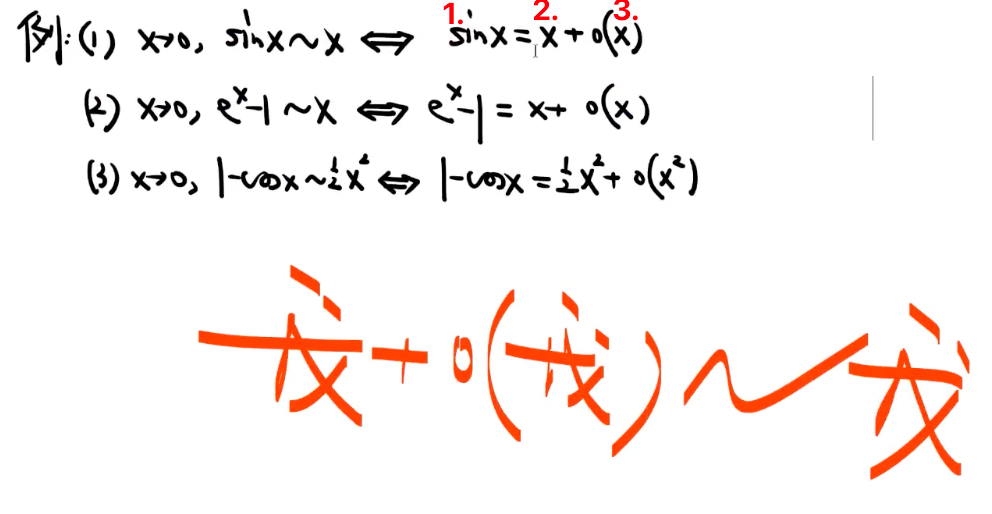 1. 2. 3.
例:(1) x→0, sinx~x ⇔ sinx=x+o(x)
(2) x→0, eˣ-1~x ⇔ eˣ-1=x+o(x)
(3) x→0, 1-cosx~½x² ⇔ 1-cosx=½x²+o(x²)
汏+o(汏)~汏